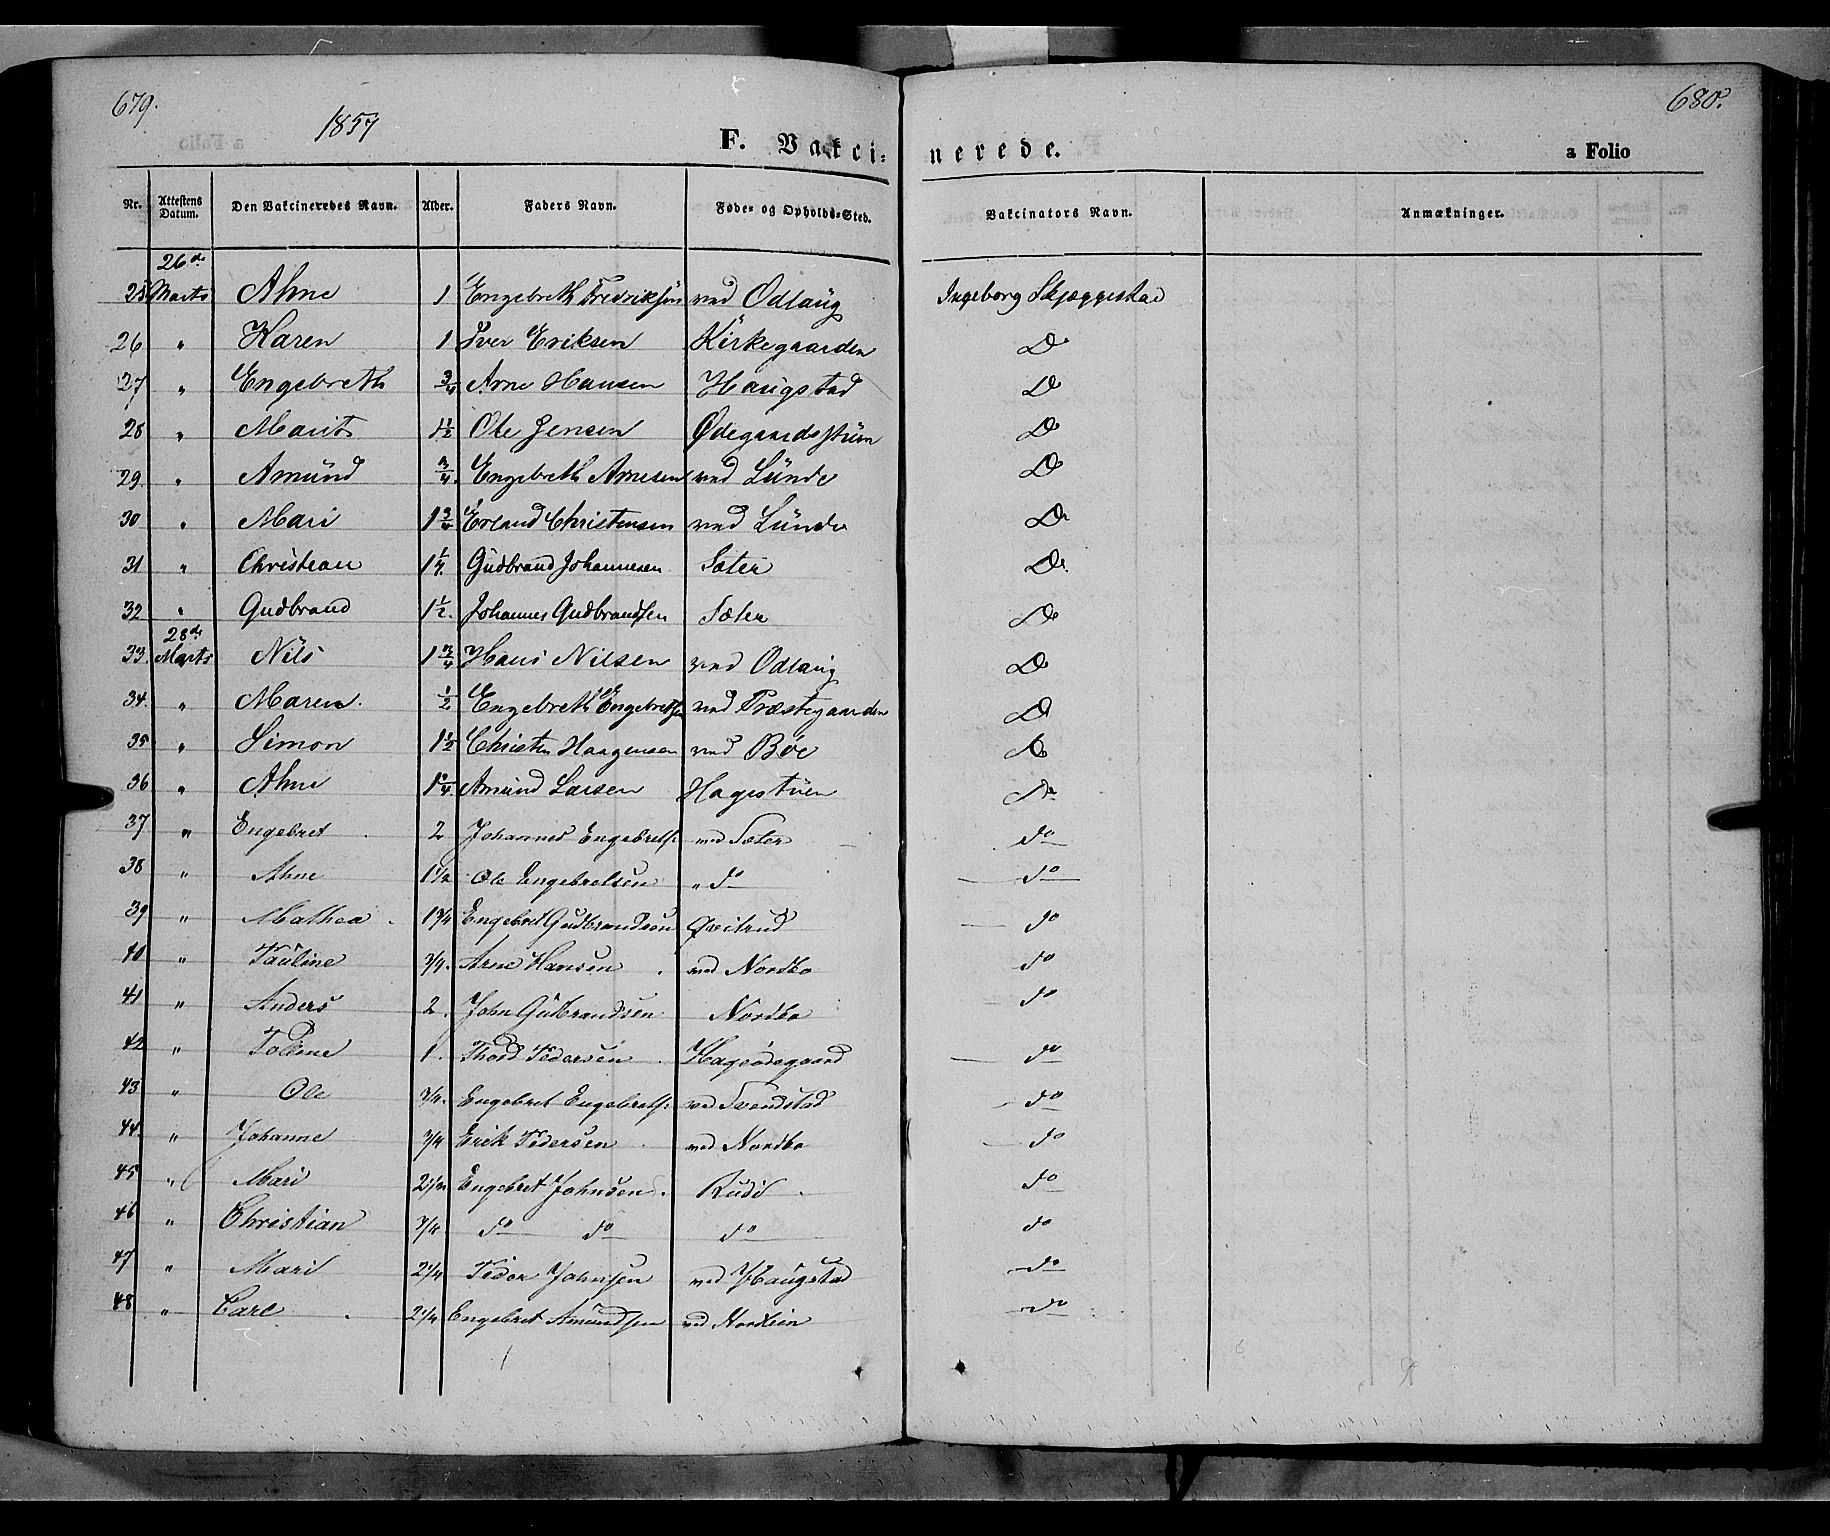 679. 680.
1857
F. Vakci- nerede. a Folio
Nr. Attestens Datum. Den Vakcineredes Navn. Alder. Faders Navn. Føde- og Opholds-Sted. Vakcinators Navn. Anmærkninger.
26de
25 Marts Ahne 1 Engebreth Fredriksøn ved Odlaug Ingeborg Skjæggestad
26 " Karen 1 Iver Eriksen Kirkegaarden Do
27 " Engebreth 3/4 Arne Hansen Haugstad Do
28 " Marit 1 1/2 Ole Jensen Ødegaardsstuen Do
29 " Amund 3/4 Engebreth Arnesen ved Lunde Do
30 " Mari 1 3/4 Erland Christensen ved Lunde Do
31 " Christian Gudbrand Johannesen Sæter Do
32 " Gudbrand 1 1/2 Johannes Gudbrandsen Sæter Do
28de
33. Marts Nils 1 3/4 Hans Nilsen ved Odlaug Do
34. " Maren 1/2 Engebreth Engebretsen ved Præstegaarden Do
35 " Simon 1 1/2 Christen Haagensen ved Bøe Do
36 " Ahne Amund Larsen Hagestuen Do
37 " Engebret 2 Johannes Engebrets: ved Sæter do
38 " Ahne 1 1/2 Ole Engebretsen " do do
39 " Mathea 1 3/4 Engebret Gudbrandsøn Qveitrud do
40 " Pauline 3/4. Arne Hansen ved Nordbo do
41 " Anders 2. John Gudbrandsen Nordbo do
42 " 1. Thord Pedersen Hageødegaard do
43 " Ole 3/4. Engebret Engebrets: ved Svendstad do
44. " Johanne 3/4 Erik Pedersen ved Nordbo do
45 " Mari 2 1/2 Engebret Johnsen Rudi do
46 " Christian 3/4. do do do do
47 " Mari 2 1/4 Peder Johnsen ved Haugstad do
48 " Carl 2 1/4 Engebret Amundsen ved do